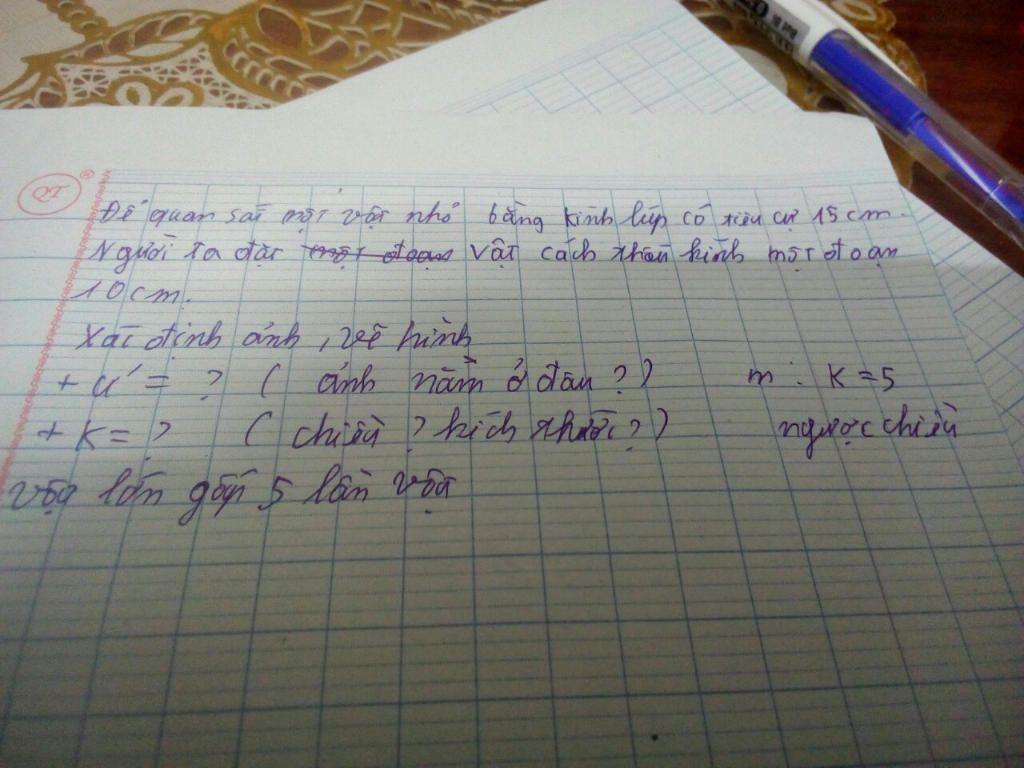 QT ®
Để quan sát một vật nhỏ bằng kính lúp có tiêu cự 15 cm.
Người ta đặt một đoạn vật cách thấu kính một đoạn
10 cm.
Xác định ảnh, vẽ hình
+ d' = ? ( ảnh nằm ở đâu ? ) m : K = 5
+ K = ? ( chiều ? kích thước ? ) ngược chiều
vật lớn gấp 5 lần vật